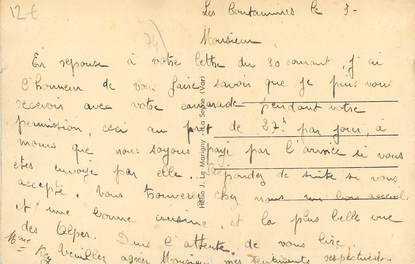 12€
Les Contamines le 3-
74)
Monsieur,
En reponse à votre lettre du 30 courant, j'ai
l'honneur de vous faire savoir que je puis vous
recevoir avec votre camarade pendant votre
permission, ceci au prix de 27f par jour, à
moins que nous soyons payé par l'armée si vous
etes envoyé par elle. Repondez de suite si vous
acceptez. Vous trouverez chez nous un bon accueil
et une bonne cuisine et la plus belle vue
des Alpes. Dans l'attente de vous lire
Veuillez agréer Monsieur mes sentiments respectueux.
Mme Rey
Hélio J. Le Marigny - La Seyne (Var)